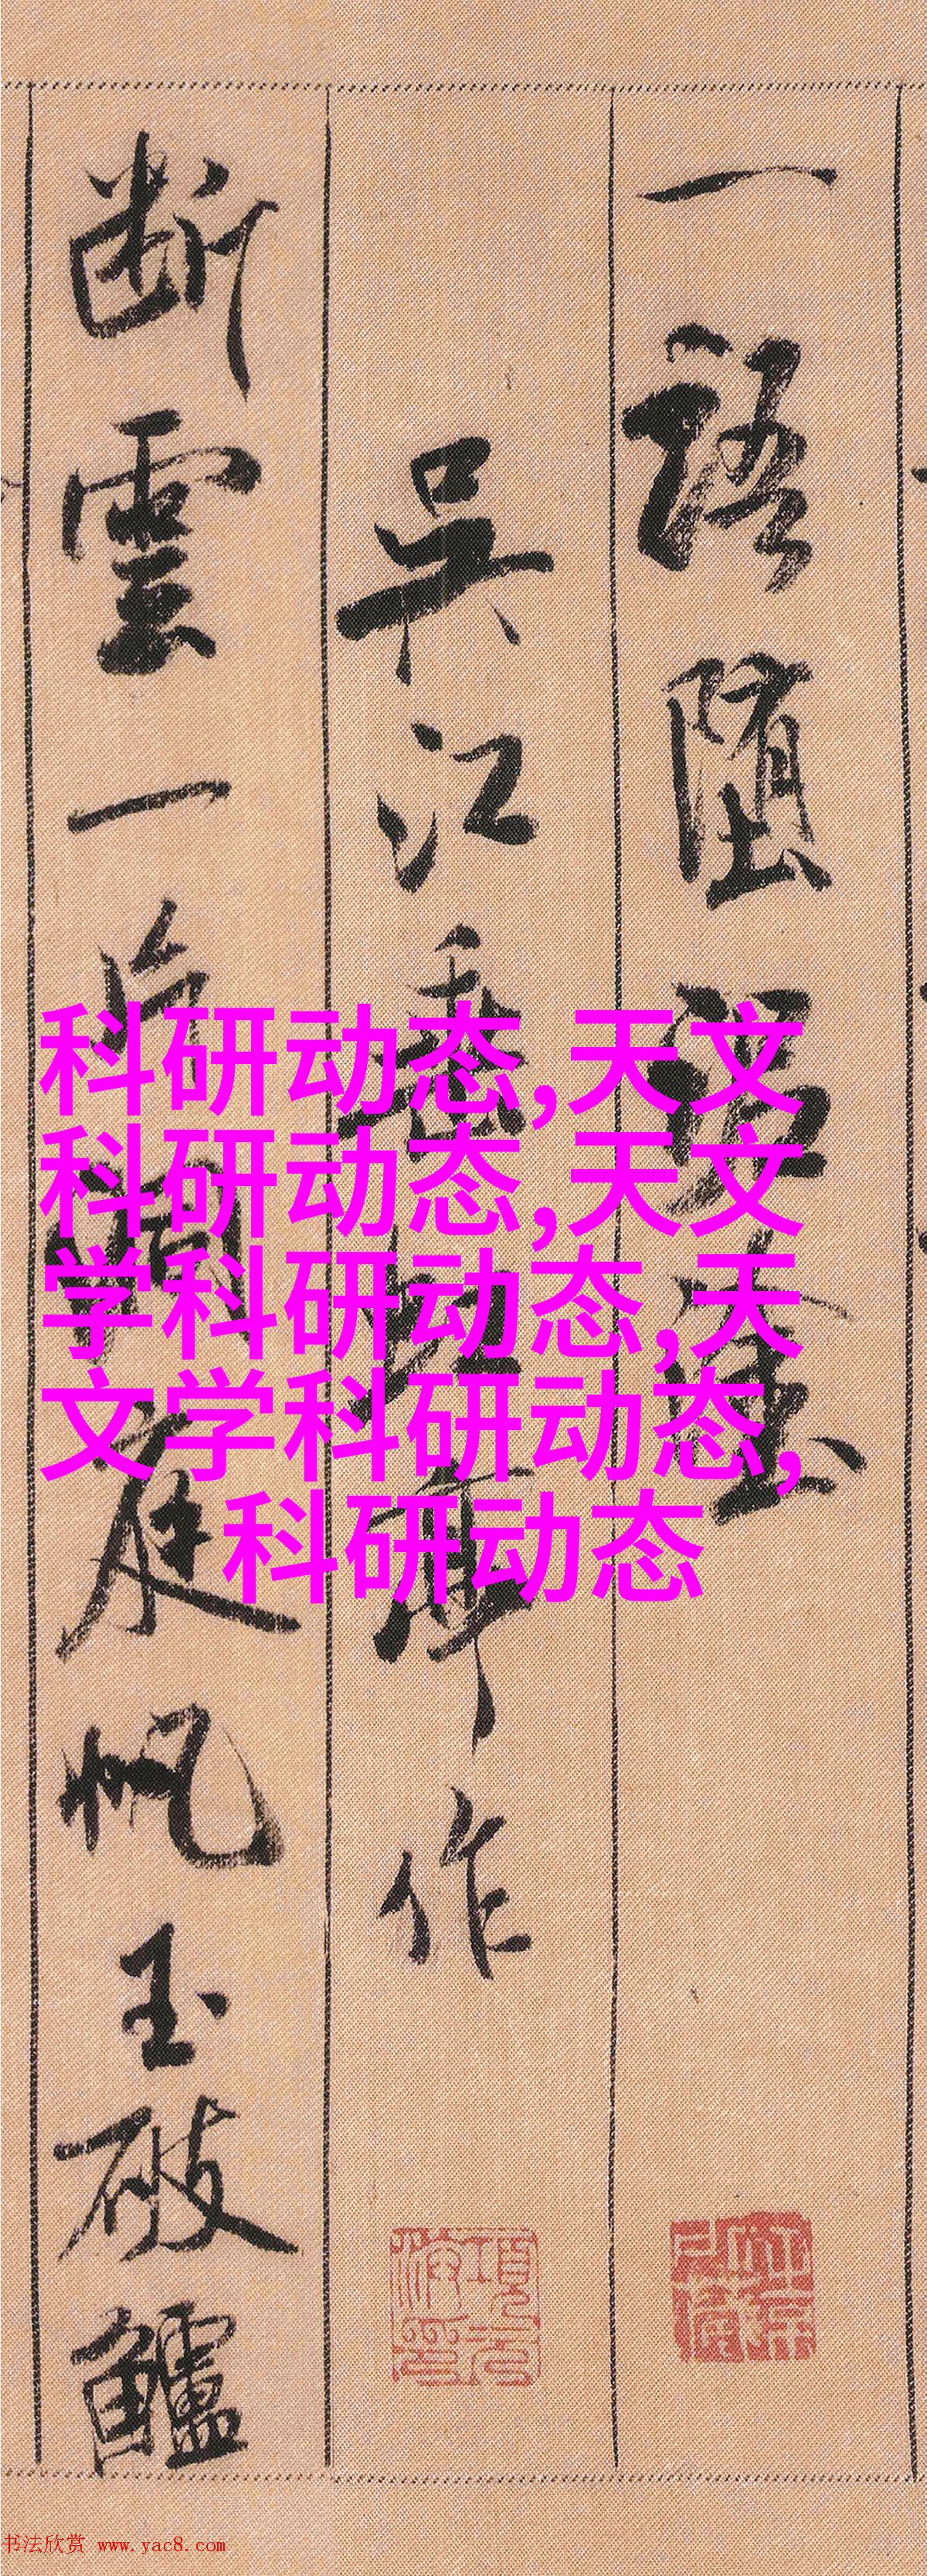 一語墮泥塗
吳江垂虹亭作
斷雲一片洞庭帆玉破鱸
科研动态,天文
科研动态,天文
学科研动态,天
文学科研动态,
科研动态
书法欣赏 www.yac8.com